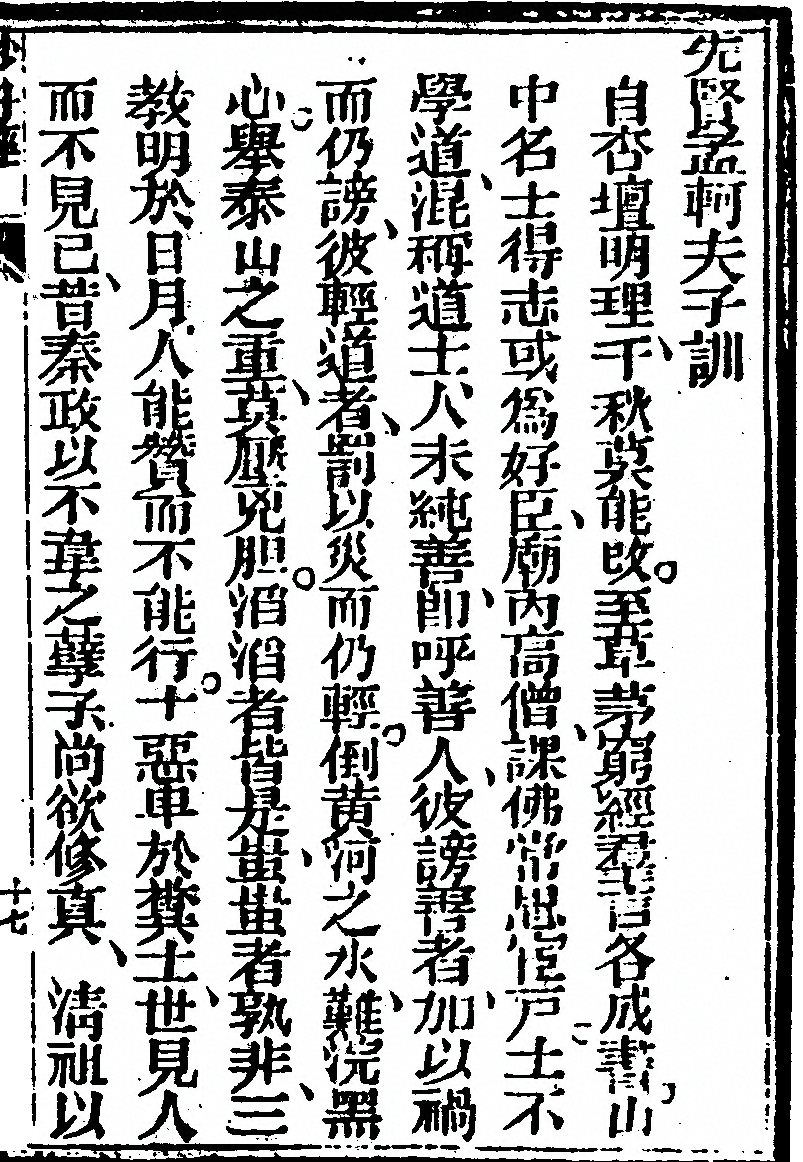 先賢孟軻夫子訓
自杏壇明理千秋莫能改至草茅窮經羣言各成書山
中名士得志或為好臣廟內高僧課佛常思宦戶士不
學道混稱道士人未純善即呼善人彼謗善者加以禍
而仍謗彼輕道者罰以災而仍輕倒黃河之水難浣黑
心舉泰山之重莫壓兇胆滔滔者皆是蚩蚩者孰非三
教明於日月人能贊而不能行十惡卑於糞土世見人
而不見已昔秦政以不韋之孽子尚欲修真 清祖以
十七